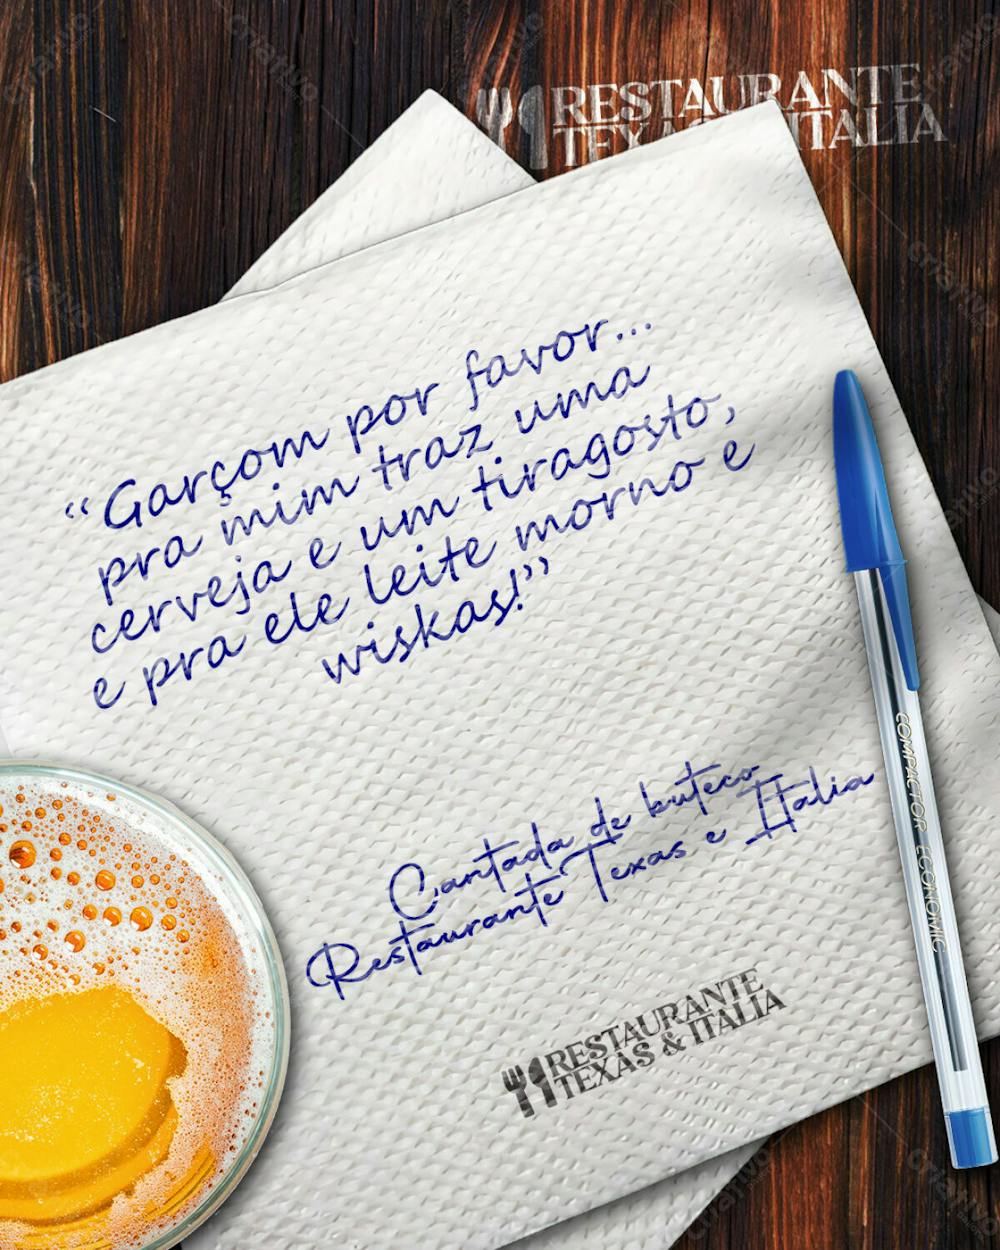 RESTAURANTE
TEXAS & ITALIA
“Garçom por favor...
pra mim traz uma
cerveja e um tiragosto,
e pra ele leite morno e
wiskas!”
Cantada de buteco
Restaurante Texas e Itália
RESTAURANTE
TEXAS & ITALIA
COMPACTOR ECONOMIC